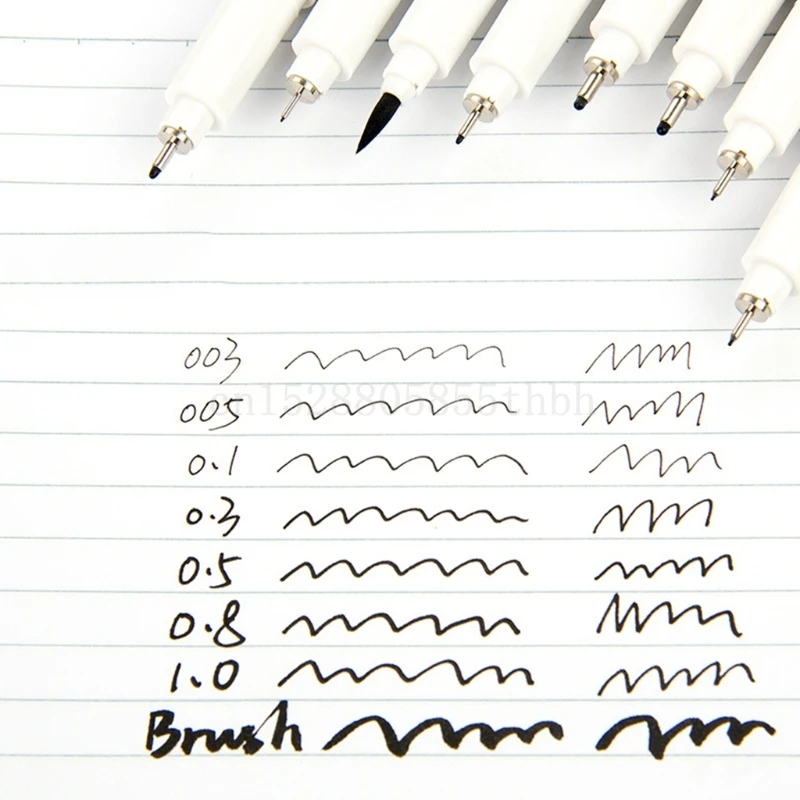 003
005
cn1528805855thbh
0.1
0.3
0.5
0.8
1.0
Brush